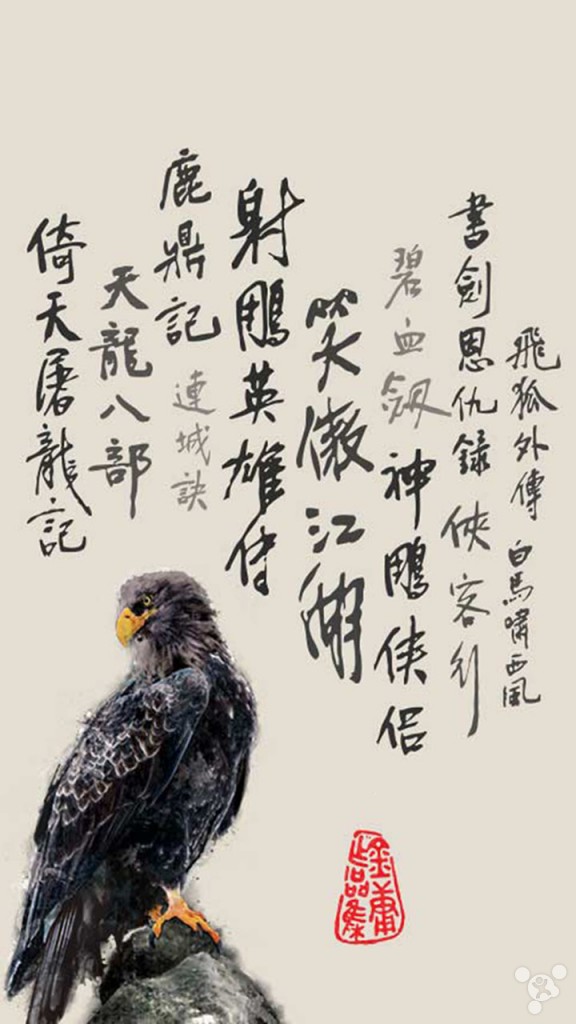 飛狐外傳
白馬嘯西風
書劍恩仇錄
俠客行
碧血劔
神鵰侠侣
笑傲江湖
射鵰英雄传
鹿鼎記
連城訣
天龍八部
倚天屠龍記
金庸
作品集